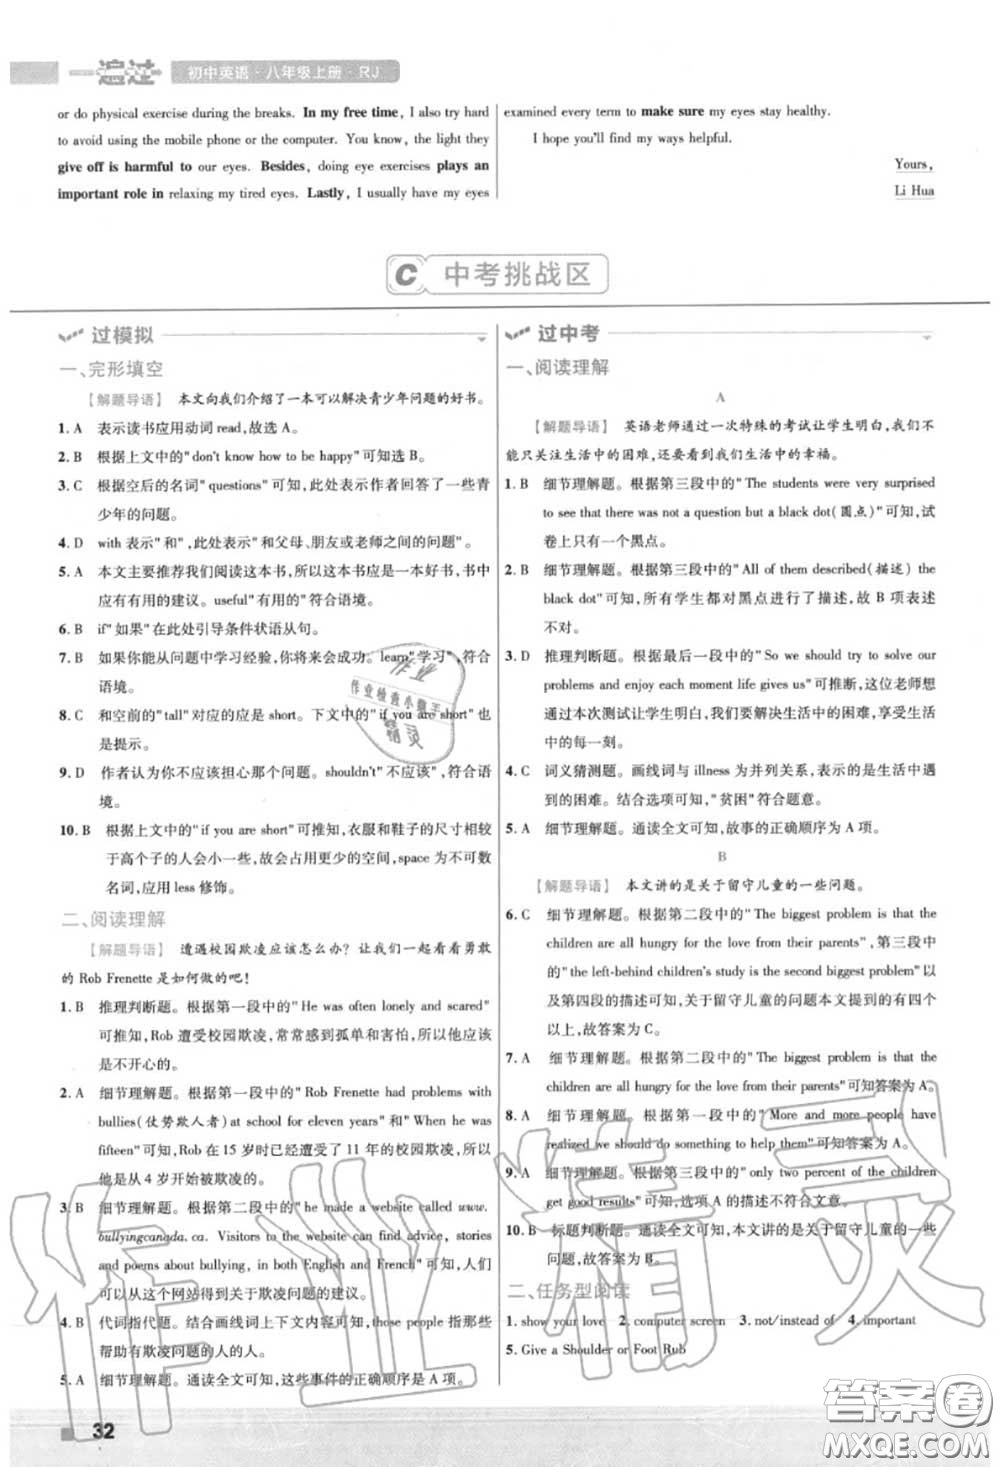 一遍过 初中英语·八年级上册·RJ
or do physical exercise during the breaks. In my free time, I also try hard
to avoid using the mobile phone or the computer. You know, the light they
give off is harmful to our eyes. Besides, doing eye exercises plays an
important role in relaxing my tired eyes. Lastly, I usually have my eyes
examined every term to make sure my eyes stay healthy.
I hope you'll find my ways helpful.
Yours,
Li Hua
C 中考挑战区
过模拟
一、完形填空
【解题导语】 本文向我们介绍了一本可以解决青少年问题的好书。
1. A 表示读书应用动词 read,故选 A。
2. B 根据上文中的"don't know how to be happy"可知选 B。
3. C 根据空后的名词"questions"可知,此处表示作者回答了一些青
少年的问题。
4. D with 表示"和",此处表示"和父母、朋友或老师之间的问题"。
5. A 本文主要推荐我们阅读这本书,所以这本书应是一本好书,书中
应有有用的建议。useful"有用的"符合语境。
6. B if"如果"在此处引导条件状语从句。
7. B 如果你能从问题中学习经验,你将来会成功。learn"学习",符合
语境。
8. C 和空前的"tall"对应的应是 short。下文中的"if you are short"也
是提示。
9. D 作者认为你不应该担心那个问题。shouldn't"不应该",符合语
境。
10. B 根据上文中的"if you are short"可推知,衣服和鞋子的尺寸相较
于高个子的人会小一些,故会占用更少的空间,space 为不可数
名词,应用 less 修饰。
二、阅读理解
【解题导语】 遭遇校园欺凌应该怎么办?让我们一起看看勇敢
的 Rob Frenette 是如何做的吧!
1. B 推理判断题。根据第一段中的"He was often lonely and scared"
可推知,Rob 遭受校园欺凌,常常感到孤单和害怕,所以他应该
是不开心的。
2. A 细节理解题。根据第一段中的"Rob Frenette had problems with
bullies(仗势欺人者)at school for eleven years"和"When he was
fifteen"可知,Rob 在 15 岁时已经遭受了 11 年的校园欺凌,也就
是从 4 岁开始被欺凌的。
3. B 细节理解题。根据第二段中的"he made a website called www.
bullyingcanada.ca. Visitors to the website can find advice, stories
and poems about bullying, in both English and French"可知,人们
可以从这个网站得到关于欺凌问题的建议。
4. B 代词指代题。结合画线词上下文内容可知,those people 指那些
帮助有欺凌问题的人的人。
5. A 细节理解题。通读全文可知,这些事件的正确顺序是 A 项。
过中考
一、阅读理解
A
【解题导语】 英语老师通过一次特殊的考试让学生明白,我们不
能只关注生活中的困难,还要看到我们生活中的幸福。
1. B 细节理解题。根据第三段中的"The students were very surprised
to see that there was not a question but a black dot(圆点)"可知,试
卷上只有一个黑点。
2. B 细节理解题。根据第三段中的"All of them described(描述) the
black dot"可知,所有学生都对黑点进行了描述,故 B 项表述
不对。
3. D 推理判断题。根据最后一段中的"So we should try to solve our
problems and enjoy each moment life gives us"可推断,这位老师想
通过本次测试让学生明白,我们要解决生活中的困难,享受生活中
的每一刻。
4. C 词义猜测题。画线词与 illness 为并列关系,表示的是生活中遇
到的困难。结合选项可知,"贫困"符合题意。
5. A 细节理解题。通读全文可知,故事的正确顺序为 A 项。
B
【解题导语】 本文讲的是关于留守儿童的一些问题。
6. C 细节理解题。根据第二段中的"The biggest problem is that the
children are all hungry for the love from their parents",第三段中
的"the left-behind children's study is the second biggest problem"以
及第四段的描述可知,关于留守儿童的问题本文提到的有四个
以上,故答案为 C。
7. A 细节理解题。根据第二段中的"The biggest problem is that the
children are all hungry for the love from their parents"可知答案为 A。
8. A 细节理解题。根据第一段中的"More and more people have
realized we should do something to help them"可知答案为 A。
9. A 细节理解题。根据第三段中的"only two percent of the children
get good results"可知,选项 A 的描述不符合文意。
10. B 标题判断题。通读全文可知,本文讲的是关于留守儿童的一些
问题,故答案为 B。
二、任务型阅读
1. show your love 2. computer screen 3. not/instead of 4. important
5. Give a Shoulder or Foot Rub
32
作业
作业检查小帮手
精灵
作业精灵
答案圈
MXQE.COM